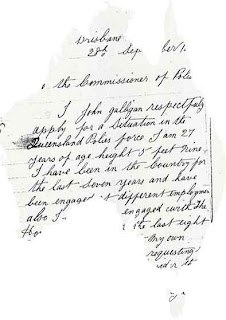 Brisbane
28th Sep ber
the Commissioner of Polic
I John galligan respectfully
apply for a Situation in the
Queensland Police force I am 27
years of age height 5 feet Nine
I have been in the Country for
the last seven years and have
been engaged t different employmen
also I engaged with The
the last eight
My own
requesting